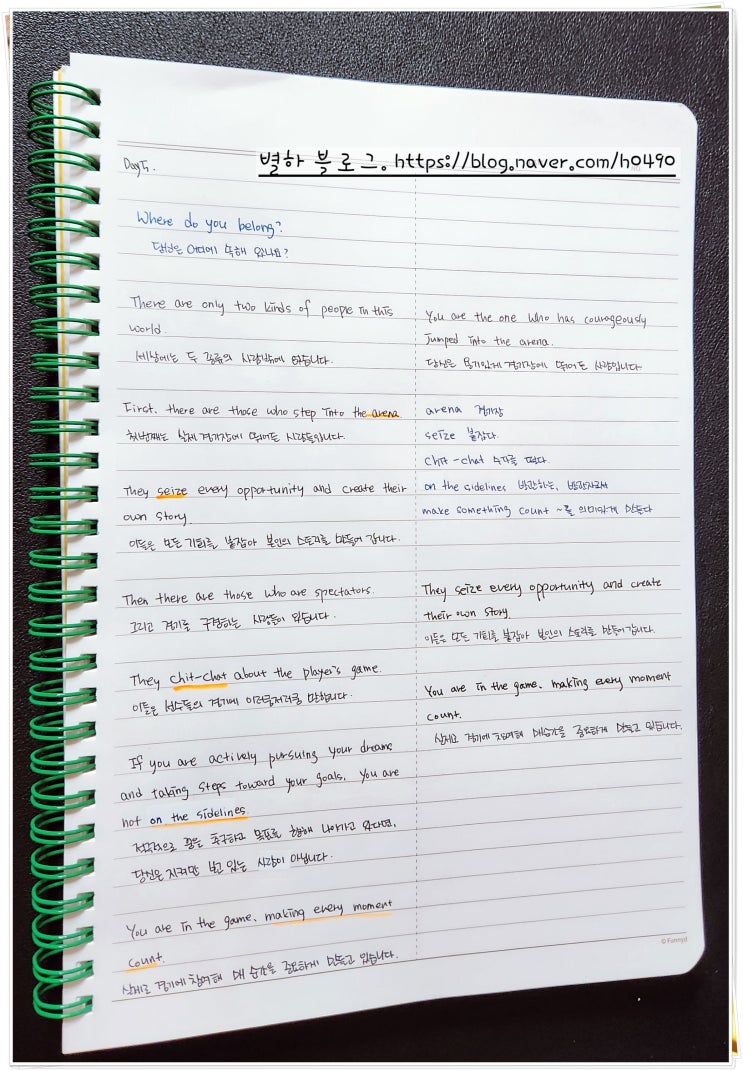 별하 블로그. https://blog.naver.com/h0490
Day 5.
Where do you belong?
당신은 어디에 속해 있나요?
There are only two kinds of people in this
world.
세상에는 두 종류의 사람밖에 없습니다.
First, there are those who step into the arena
첫번째는 실제 경기장에 뛰어든 사람들입니다.
They seize every opportunity and create their
own story.
이들은 모든 기회를 붙잡아 본인의 스토리를 만들어 갑니다.
Then there are those who are spectators.
그리고 경기를 구경하는 사람들이 있습니다.
They chit-chat about the player's game.
이들은 선수들의 경기에 이러쿵저러쿵 말합니다.
If you are actively pursuing your dreams
and taking steps toward your goals, you are
not on the sidelines
적극적으로 꿈을 추구하고 목표를 향해 나아가고 있다면,
당신은 지켜만 보고 있는 사람이 아닙니다.
You are in the game, making every moment
count.
실제로 경기에 참여해 매 순간을 중요하게 만들고 있습니다.
You are the one who has courageously
jumped into the arena.
당신은 용기있게 경기장에 뛰어든 사람입니다.
arena 경기장
seize 붙잡다.
chit-chat 수다를 떨다.
on the sidelines 방관하는, 방관자로서
make something count ~를 의미있게 만든다
They seize every opportunity and create
their own story.
이들은 모든 기회를 붙잡아 본인의 스토리를 만들어갑니다.
You are in the game, making every moment
count.
실제로 경기에 참여해 매순간을 중요하게 만들고 있습니다.
© Funnyd